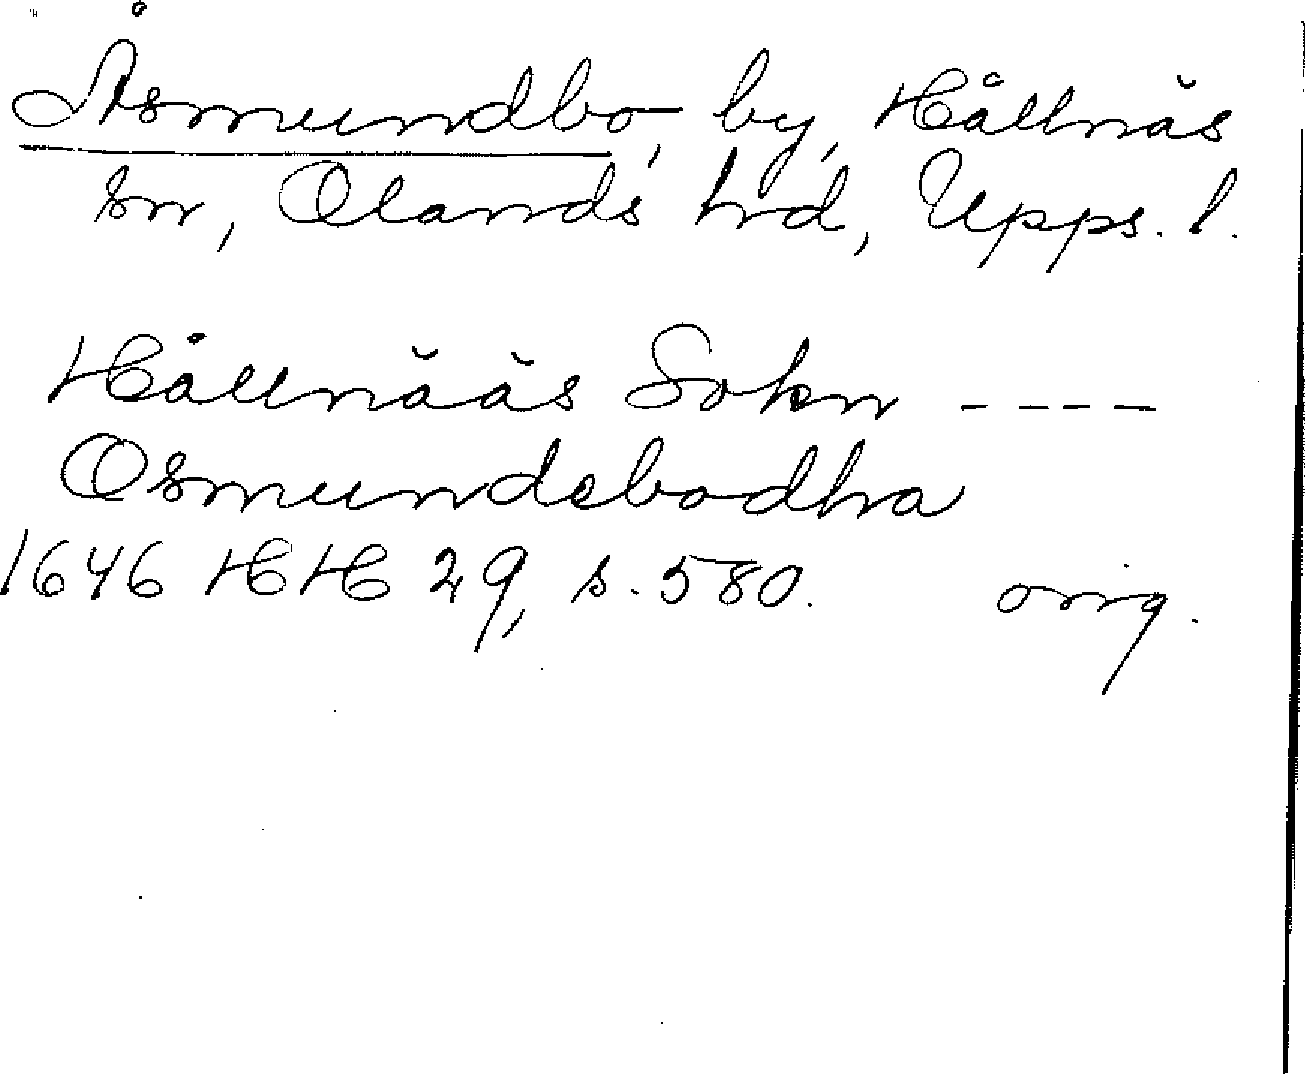 Åsmundbo, by, Hållnäs
sn, Olands hrd, Upps. l.
Hållnääs Sokn ----
Osmundebodha
1646 HH 29, s. 580. orig.